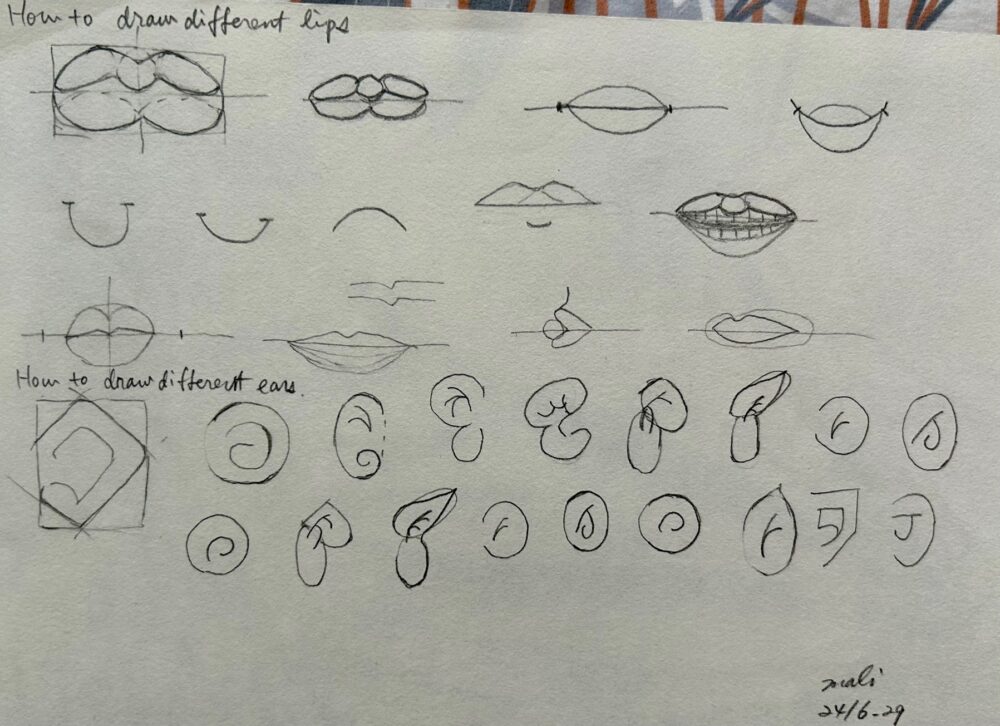 How to draw different lips
How to draw different ears.
24/6-29